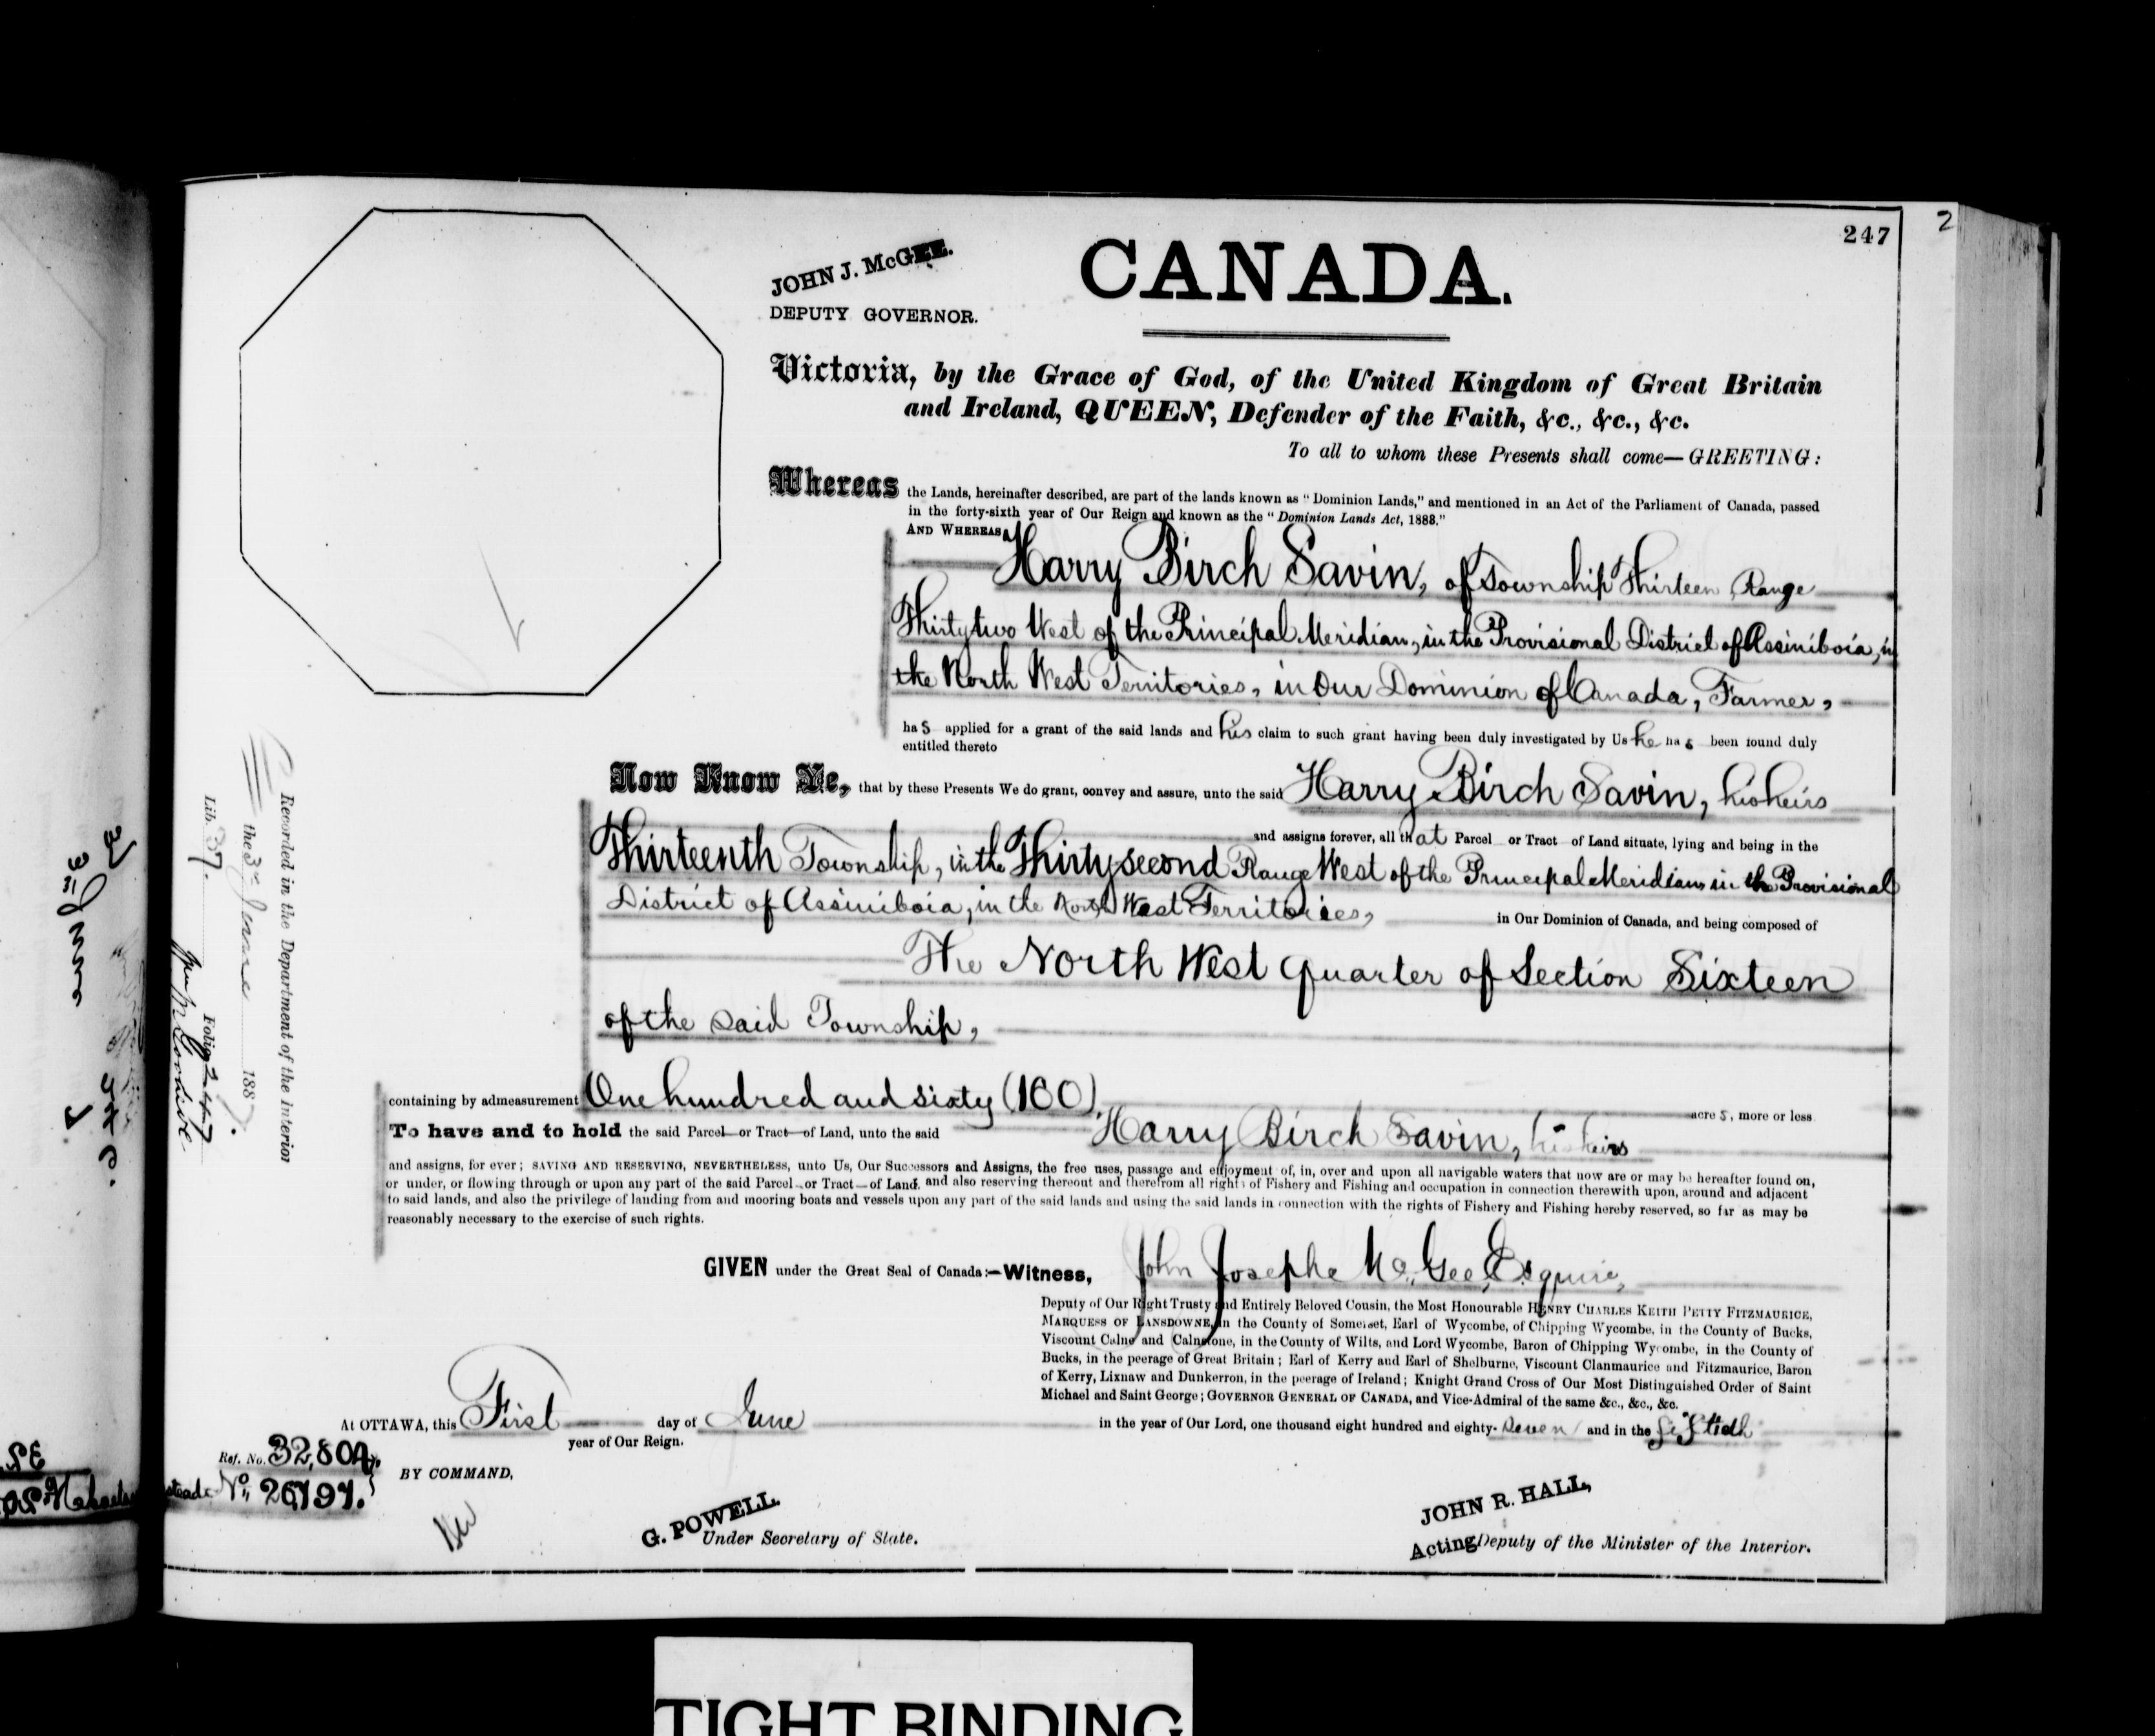 247
2
JOHN J. McGEE.
DEPUTY GOVERNOR.
CANADA.
Victoria, by the Grace of God, of the United Kingdom of Great Britain
and Ireland, QUEEN, Defender of the Faith, &c., &c., &c.
To all to whom these Presents shall come—GREETING:
Whereas the Lands, hereinafter described, are part of the lands known as "Dominion Lands," and mentioned in an Act of the Parliament of Canada, passed
in the forty-sixth year of Our Reign and known as the "Dominion Lands Act, 1883."
AND WHEREAS
Harry Birch Savin, of Township Thirteen Range
Thirty two West of the Principal Meridian, in the Provisional District of Assiniboia, in
the North West Territories, in Our Dominion of Canada, Farmer,
has applied for a grant of the said lands and his claim to such grant having been duly investigated by Us he has been found duly
entitled thereto
Now Know Ye, that by these Presents We do grant, convey and assure, unto the said Harry Birch Savin, his heirs
and assigns forever, all that Parcel or Tract of Land situate, lying and being in the
Thirteenth Township, in the Thirty second Range West of the Principal Meridian in the Provisional
District of Assiniboia, in the North West Territories, in Our Dominion of Canada, and being composed of
The North West quarter of Section Sixteen
of the said Township,
containing by admeasurement One hundred and sixty (160) acres, more or less
To have and to hold the said Parcel or Tract of Land, unto the said Harry Birch Savin, his heirs
and assigns, for ever; SAVING AND RESERVING, NEVERTHELESS, unto Us, Our Successors and Assigns, the free uses, passage and enjoyment of, in, over and upon all navigable waters that now are or may be hereafter found on,
or under, or flowing through or upon any part of the said Parcel or Tract of Land, and also reserving thereout and therefrom all rights of Fishery and Fishing and occupation in connection therewith upon, around and adjacent
to said lands, and also the privilege of landing from and mooring boats and vessels upon any part of the said lands and using the said lands in connection with the rights of Fishery and Fishing hereby reserved, so far as may be
reasonably necessary to the exercise of such rights.
GIVEN under the Great Seal of Canada:—Witness, John Josephe McGee, Esquire,
Deputy of Our Right Trusty and Entirely Beloved Cousin, the Most Honourable HENRY CHARLES KEITH PETTY FITZMAURICE,
MARQUESS OF LANSDOWNE, in the County of Somerset, Earl of Wycombe, of Chipping Wycombe, in the County of Bucks,
Viscount Calne and Calnstone, in the County of Wilts, and Lord Wycombe, Baron of Chipping Wycombe, in the County of
Bucks, in the peerage of Great Britain; Earl of Kerry and Earl of Shelburne, Viscount Clanmaurice and Fitzmaurice, Baron
of Kerry, Lixnaw and Dunkerron, in the peerage of Ireland; Knight Grand Cross of Our Most Distinguished Order of Saint
Michael and Saint George; GOVERNOR GENERAL OF CANADA, and Vice-Admiral of the same &c., &c., &c.
At OTTAWA, this First day of June in the year of Our Lord, one thousand eight hundred and eighty-seven and in the fiftieth
year of Our Reign.
Ref. No. 32,804,
No. 26797.
BY COMMAND,
G. POWELL.
Under Secretary of State.
JOHN R. HALL,
Acting Deputy of the Minister of the Interior.
Recorded in the Department of the Interior
the 3rd June 1887.
Lib. 37. Folio 247
TIGHT BINDING